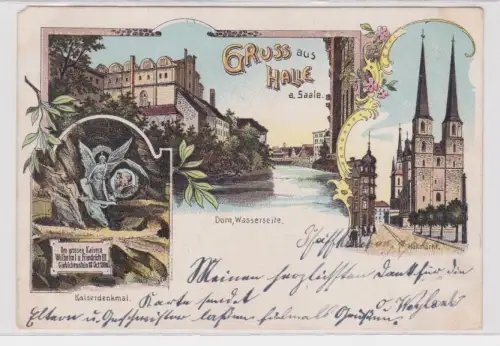 Gruss aus
Halle
a. Saale.
Dom, Wasserseite.
Kaiserdenkmal.
Den grossen Kaisern
Wilhelm I. u. Friedrich III.
Meinen herzlichsten Dank für die
Karte sendet
Eltern u. Geschwister lassen ebenfalls Grüßen.